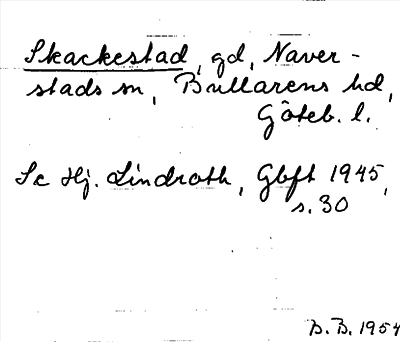 Skackestad, gd, Naver-
stads sn, Bullarens hd,
Göteb. l.
Se Hj. Lindroth, Gbft 1945,
s. 30
B. B. 1954